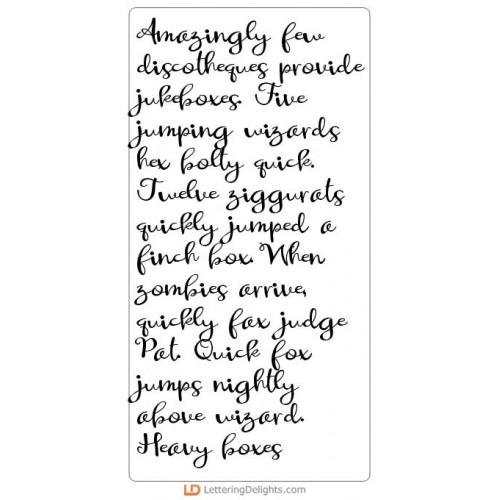 Amazingly few
discotheques provide
jukeboxes. Five
jumping wizards
hex bolty quick.
Twelve ziggurats
quickly jumped a
finch box. When
zombies arrive,
quickly fax judge
Pat. Quick fox
jumps nightly
above wizard.
Heavy boxes
LD LetteringDelights.com